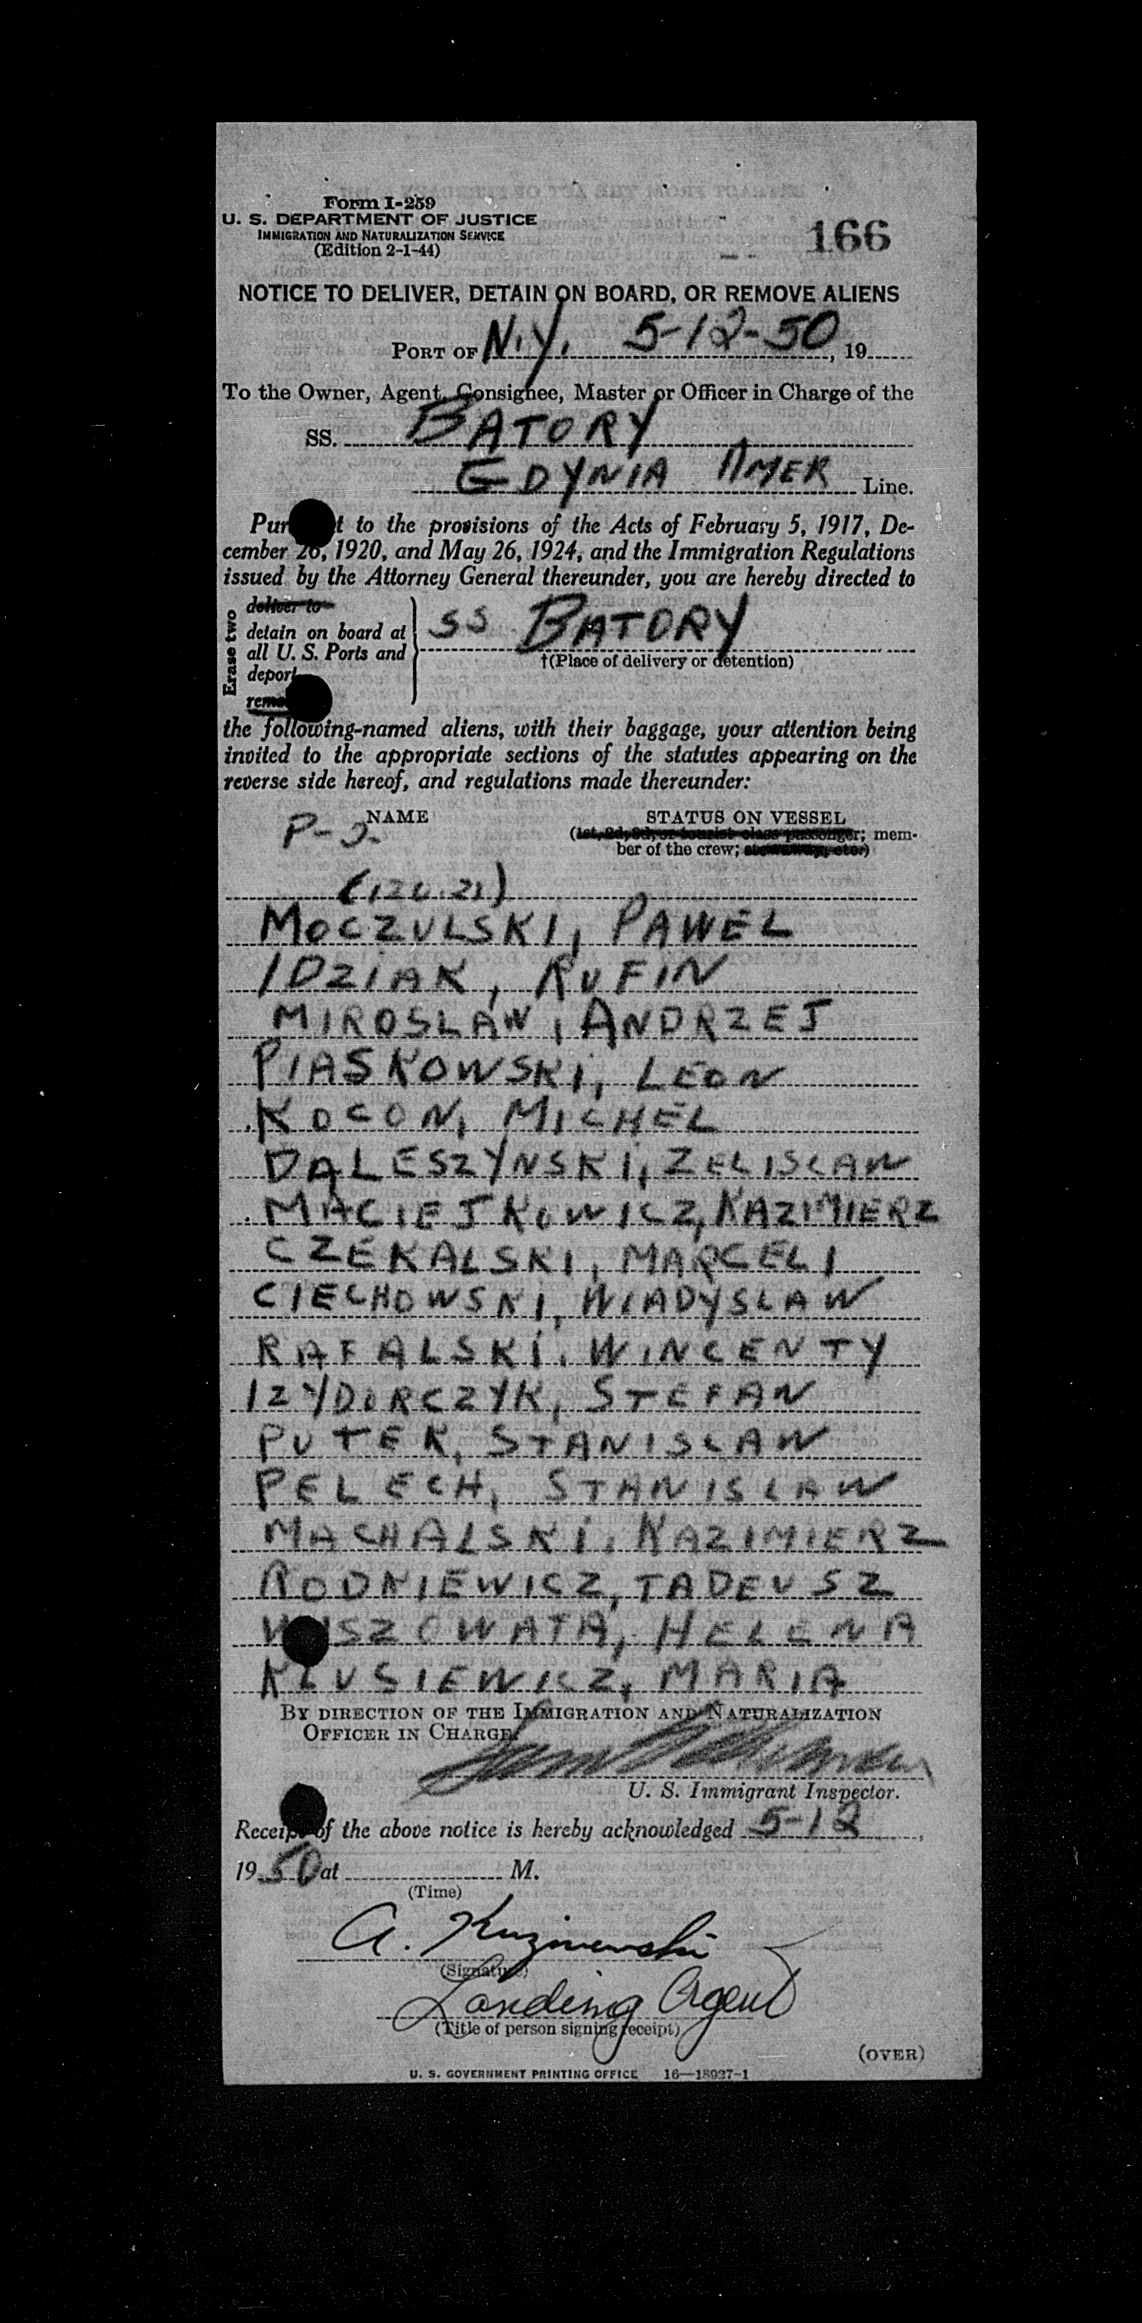 Form I-259
U. S. DEPARTMENT OF JUSTICE
IMMIGRATION AND NATURALIZATION SERVICE
(Edition 2-1-44)
166
NOTICE TO DELIVER, DETAIN ON BOARD, OR REMOVE ALIENS
PORT OF N.Y. 5-12-50, 19
To the Owner, Agent, Consignee, Master or Officer in Charge of the
SS. BATORY
GDYNIA AMER Line.
to the provisions of the Acts of February 5, 1917, De-
cember 26, 1920, and May 26, 1924, and the Immigration Regulations
issued by the Attorney General thereunder, you are hereby directed to
Erase two
deliver to
detain on board at
all U. S. Ports and
deport
SS BATORY
†(Place of delivery or detention)
the following-named aliens, with their baggage, your attention being
invited to the appropriate sections of the statutes appearing on the
reverse side hereof, and regulations made thereunder:
NAME
STATUS ON VESSEL
(1st, 2d, 3d, or tourist class passenger; mem-
ber of the crew; stowaway, etc.)
MOCZULSKI, PAWEL
IDZIAK, RUFIN
MIROSLAW, ANDRZEJ
PIASKOWSKI, LEON
KOCON, MICHEL
DALESZYNSKI, ZELISLAW
MACIEJKOWICZ, KAZIMIERZ
CZEKALSKI, MARCELI
CIECHOWSKI, WLADYSLAW
RAFALSKI, WINCENTY
IZYDORCZYK, STEFAN
PUTEK, STANISLAW
PELECH, STANISLAW
MACHALSKI, KAZIMIERZ
RODKIEWICZ, TADEUSZ
HELENA
KLUSIEWICZ, MARIA
BY DIRECTION OF THE IMMIGRATION AND NATURALIZATION
OFFICER IN CHARGE.
U. S. Immigrant Inspector.
Receipt of the above notice is hereby acknowledged 5-12,
1950 at M.
(Time)
A.
(Signature)
Landing Agent
(Title of person signing receipt)
(OVER)
U. S. GOVERNMENT PRINTING OFFICE 16—18927-1